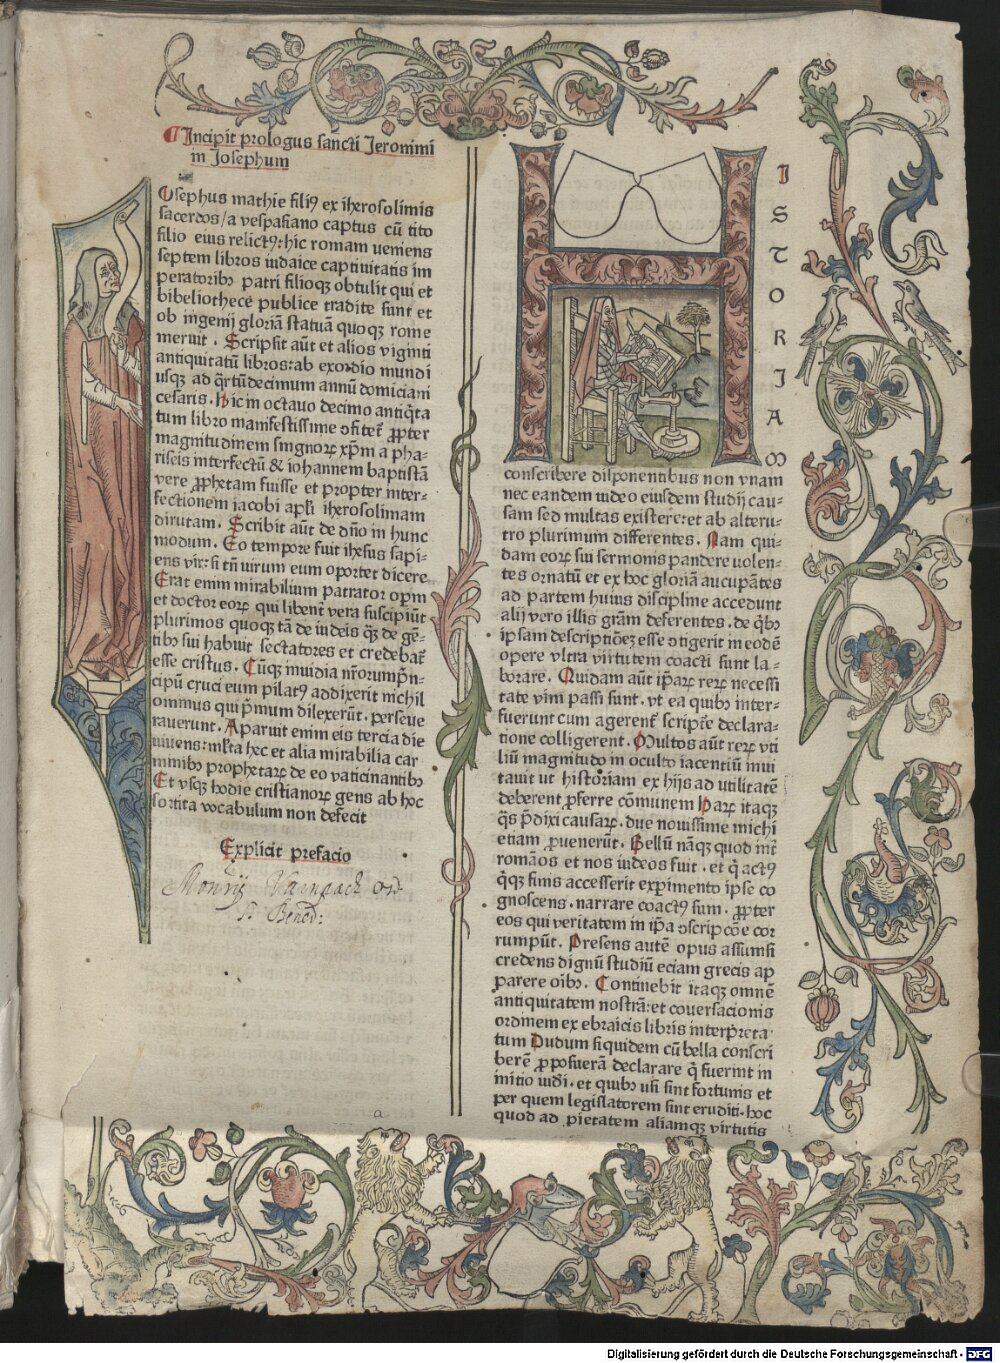 Incipit prologus sancti Jeronimi
in Josephum
Osephus mathie filiꝰ ex iherosolimis
sacerdos/a vespasiano captus cū tito
filio eius relictꝰ: hic romam veniens
septem libros iudaice captiuitatis im
peratoribꝫ patri filioqꝫ obtulit qui et
bibeliothece publice tradite sunt et
ob ingenij gloriā statuā quoqꝫ rome
meruit . Scripsit aūt et alios viginti
antiquitatū libros: ab exordio mundi
usqꝫ ad qͬrtūdecimum annū domiciani
cesaris. Hic in octauo decimo antiqͥta
tum libro manifestissime ɔfitet᷑ ꝓpter
magnitudinem signoꝝ xp̄m a pha-
riseis interfectū & iohannem baptistā
vere ꝓphetam fuisse et propter inter-
fectionem iacobi apl̄i iherosolimam
dirutam. Scribit aūt de dn̄o in hunc
modum. Eo tempore fuit ihesus sapi-
ens vir: si tn̄ uirum eum oportet dicere
Erat enim mirabilium patrator op̄m
et doctor eoꝝ qui libent᷑ vera suscipiūt
plurimos quoqꝫ tā de iudeis qͣꝫ de gē-
tibꝫ sui habuit sectatores et credebat᷑
esse cristus. Cūqꝫ inuidia nr̄orum pͥn-
cipū cruci eum pilatꝰ addixerit nichil
ominus qui pͥmum dilexerūt. perseue
rauerunt. Aparuit enim eis tercia die
viuens: ml̄ta hec et alia mirabilia car
minibꝫ prophetaꝝ de eo vaticinantibꝫ
Et vsqꝫ hodie cristianoꝝ gens ab hoc
sortita vocabulum non defecit
Explicit prefacio
H
ISTORIAM
conscribere disponentibus non vnam
nec eandem uideo eiusdem studij cau-
sam sed multas existere: et ab alteru-
tro plurimum differentes. Nam qui-
dam eoꝝ sui sermonis pandere volen-
tes ornatū et ex hoc gloriā aucupātes
ad partem huius discipline accedunt
alij vero illis grām deferentes. de qͥbꝫ
ipsam descriptiōeꝫ esse ɔtigerit in eodē
opere vltra virtutem coacti sunt la-
borare. Quidam aūt ip̄aꝝ reꝝ necessi
tate vim passi sunt. vt ea quibꝫ inter-
fuerunt cum agerent᷑ script̄e declara-
tione colligerent. Multos aūt reꝝ vti
liū magnitudo in oculto iacentiū inui
tauit ut historiam ex hijs ad utilitatē
deberent ꝓferre cōmunem Haꝝ itaqꝫ
qͣs p̄dixi causaꝝ. due nouissime michi
etiam ꝓuenerūt. Bellū nāqꝫ quod int᷑
romāos et nos iudeos fuit. et qͥ actꝰ
qͥqꝫ finis accesserit expimento ip̄se co
gnoscens. narrare coactꝰ sum. ꝓpter
eos qui veritatem in ip̄a ɔscripcōe cor
rumpūt. Presens autē opus assumsi
credens dignū studiū eciam grecis ap
parere oībꝫ. Continebit itaqꝫ omnē
antiquitatem nostrā: et cōuersacionis
ordinem ex ebraicis libris interp̄reta-
tum Dudum siquidem cū bella conscri
berē ꝓposuerā declarare qͥ fuerint in
initio iudi. et quibꝫ usi sint fortunis et
per quem legislatorem sint eruditi. hoc
quod ad pietatem aliamqꝫ virtutis
a
Digitalisierung gefördert durch die Deutsche Forschungsgemeinschaft - DFG